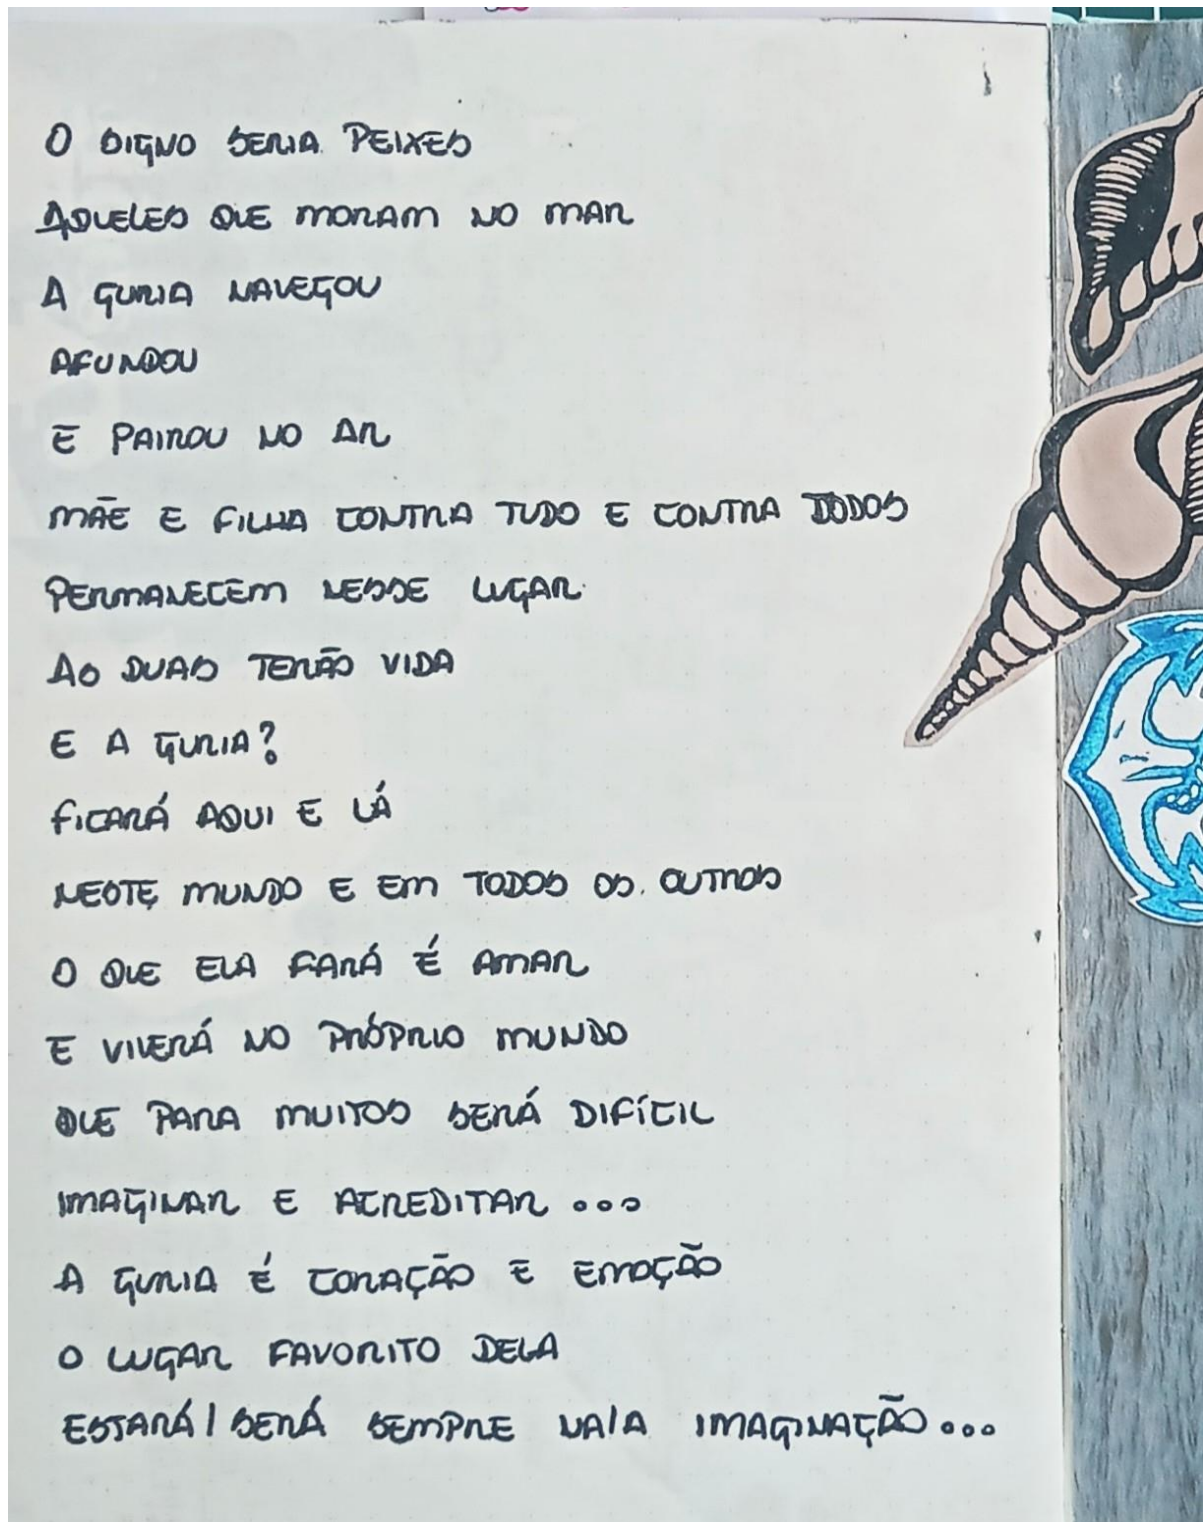 O SIGNO SERIA PEIXES
AQUELES QUE MORAM NO MAR
A GURIA NAVEGOU
AFUNDOU
E PAIROU NO AR
MÃE E FILHA CONTRA TUDO E CONTRA TODOS
PERMANECEM NESSE LUGAR.
AS DUAS TERÃO VIDA
E A GURIA?
FICARÁ AQUI E LÁ
NESTE MUNDO E EM TODOS OS OUTROS
O QUE ELA FARÁ É AMAR
E VIVERÁ NO PRÓPRIO MUNDO
QUE PARA MUITOS SERÁ DIFÍCIL
IMAGINAR E ACREDITAR ...
A GURIA É CORAÇÃO E EMOÇÃO
O LUGAR FAVORITO DELA
ESTARÁ/SERÁ SEMPRE NA/A IMAGINAÇÃO...